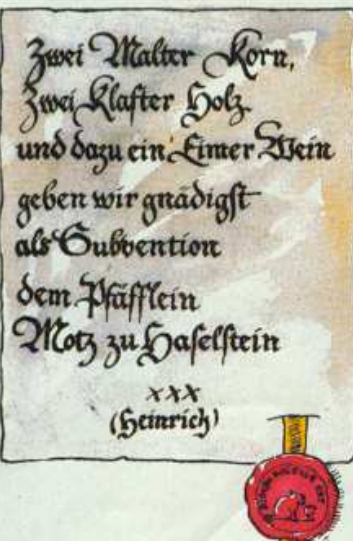 Zwei Malter Korn,
Zwei Klafter Holz
und dazu ein Eimer Wein
geben wir gnädigst
als Subvention
dem Pfäfflein
Motz zu Haselstein
xxx
(Heinrich)